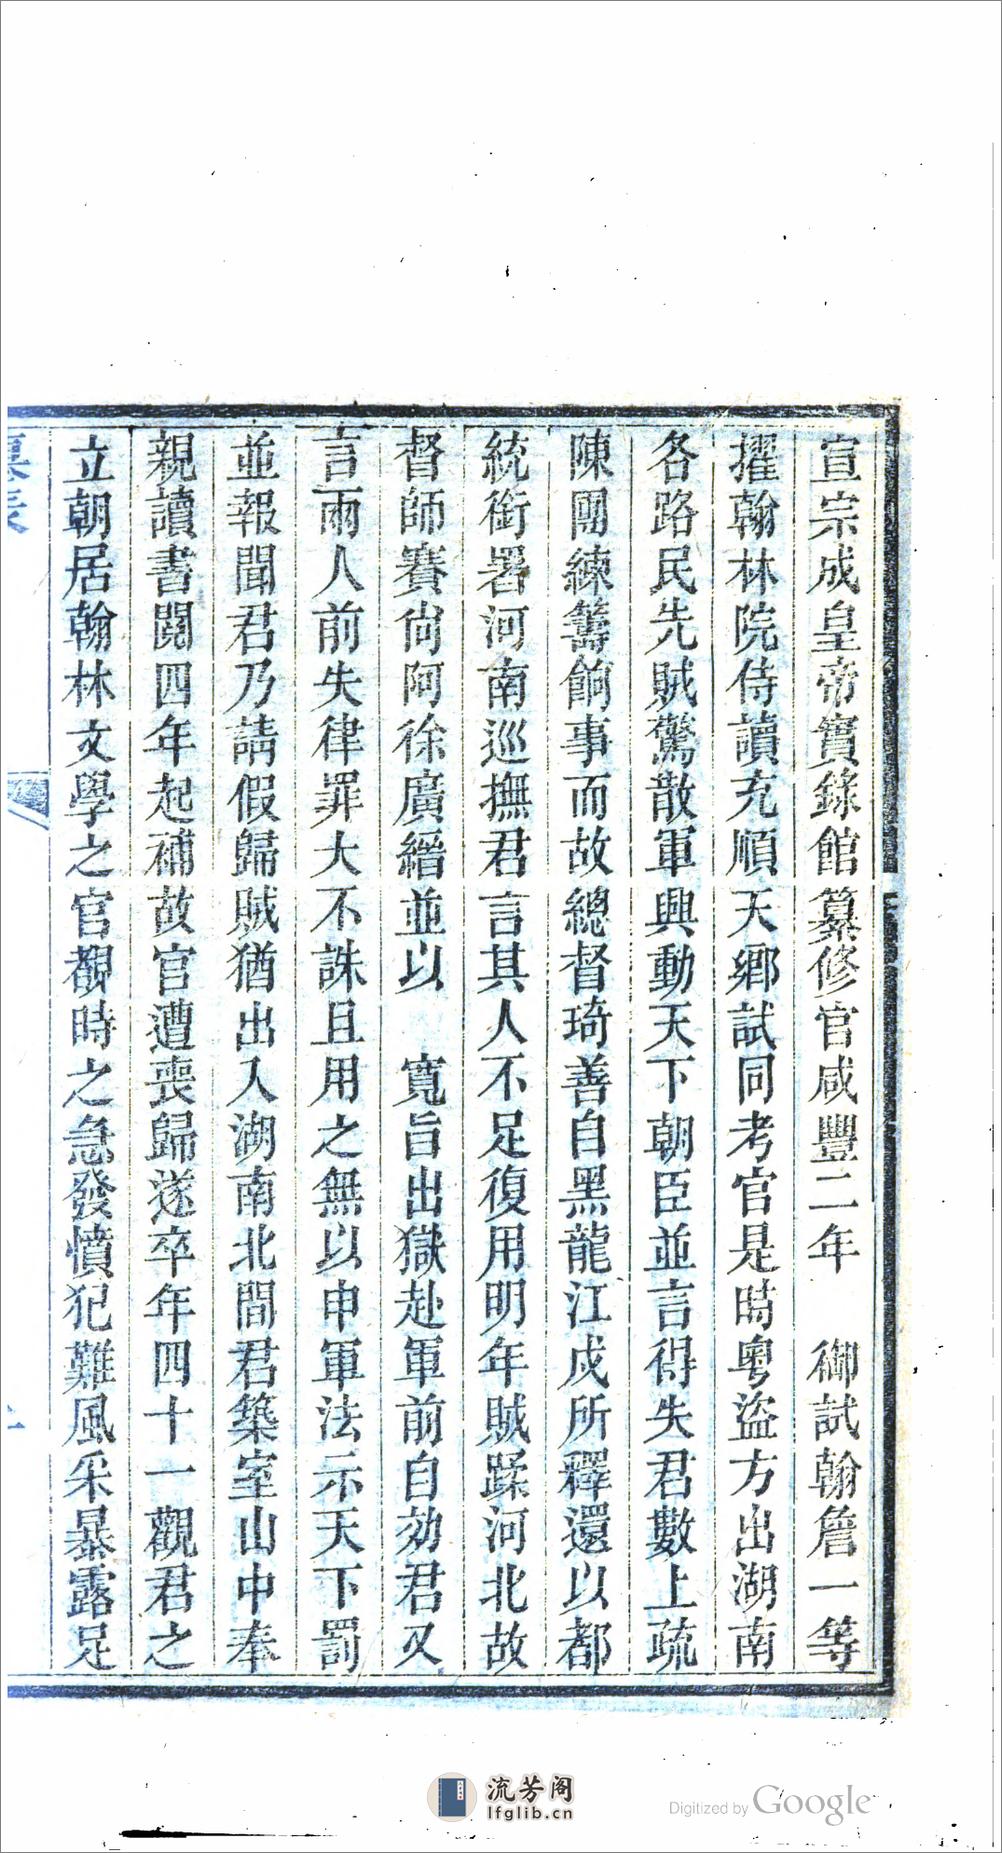 宣宗成皇帝實錄館纂修官咸豐二年　御試翰詹一等
擢翰林院侍讀充順天鄉試同考官是時粵盜方出湖南
各路民先賊驚散軍興動天下朝臣並言得失君數上疏
陳團練籌餉事而故總督琦善自黑龍江戍所釋還以都
統銜署河南巡撫君言其人不足復用明年賊蹂河北故
督師賽尙阿徐廣縉並以　寬旨出獄赴軍前自効君又
言兩人前失律罪大不誅且用之無以申軍法示天下罰
並報聞君乃請假歸賊猶出入湖南北間君築室山中奉
親讀書閱四年起補故官遭喪歸遂卒年四十一觀君之
立朝居翰林文學之官覩時之急發憤犯難風采暴露足
墓表
流芳阁
lfglib.cn
Digitized by Google